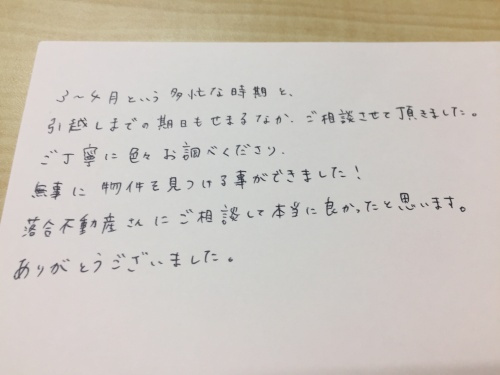 3〜4月という多忙な時期と、
引越しまでの期日もせまるなか、ご相談させて頂きました。
ご丁寧に色々お調べくださり、
無事に物件を見つける事ができました！
落合不動産さんにご相談して本当に良かったと思います。
ありがとうございました。